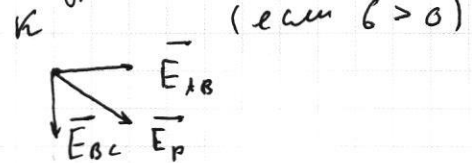 K (если б > 0)
E_AB
E_BC E_p